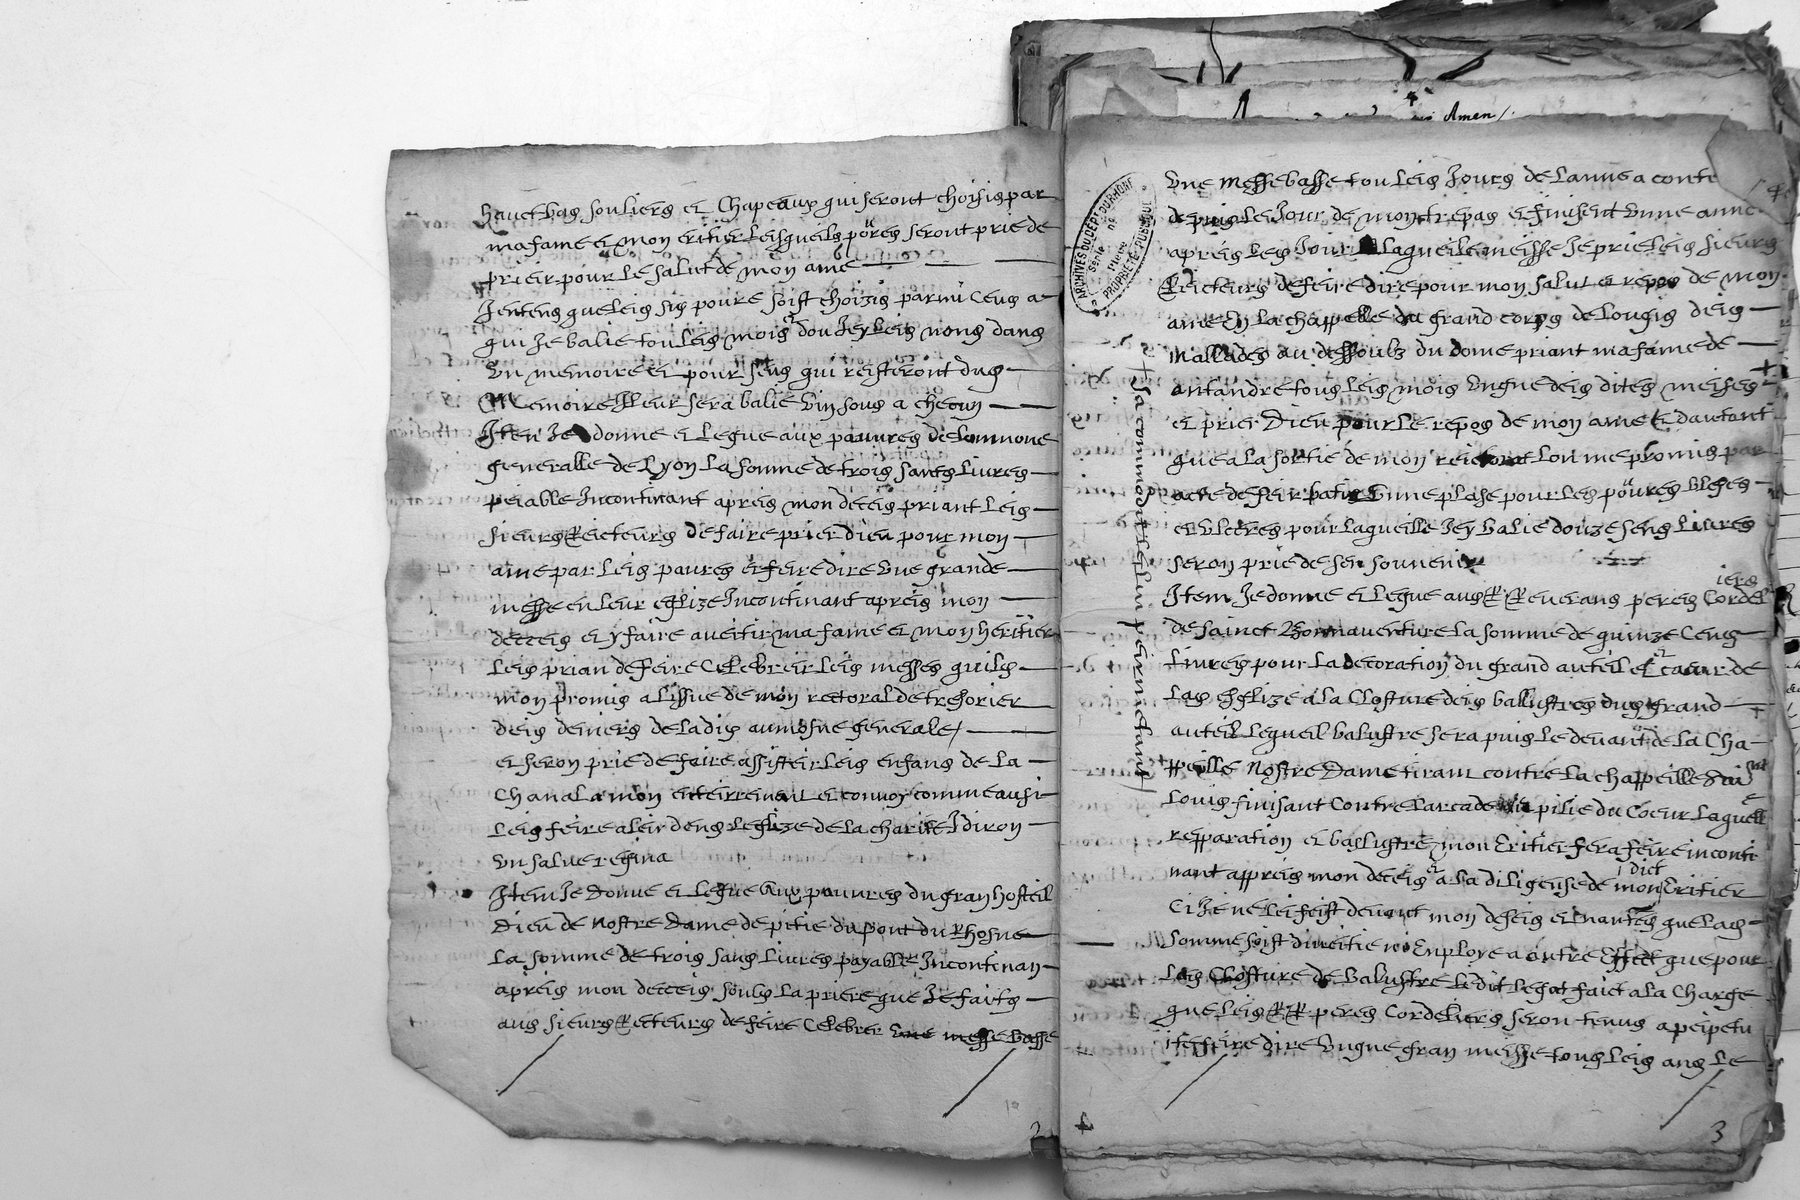 hault bas souliers et Chapeaux qui seront choisis par
ma fame et mon eritier leisqueils poures seront prie de
prieir pour le salut de mon ame
Jentens que leis sis poure soist choizis parmi Ceus a
qui Je balie tou leis mois dou Jey leis nons dans
un memoire et pour seus qui reisteront dus
Memoire Il leur sera balie vin sous a checun
Iten Je donne et legue aux pauvres de lomone
generalle de Lyon la somme de trois sants livres
peiable Incontinant apreis mon deceis priant leis
sieurs Reicteurs de faire prier dieu pour mon
ame par leis paures et feire dire une grande
messe en leur eglize Incontinant apreis mon
decceis et y faire avertir ma fame et mon heritier
leis prian de feire Celebreir leis messes quils
mon promis a lissue de mon rectoral de tresorier
deis deniers de ladis aumosne generale
et seron prie de faire assisteir leis enfans de la
Chana a mon enteirrement et convoy comme ausi
leis feire aleir dens leglize de la charite I diron
un salve regina
Item Je donne et legue aux pauvres du gran hosteil
Dieu de nostre Dame de pitie du pont du Rhosne
la somme de trois sans livres payable Incontinan
apreis mon decceis soubs la priere que Je faits
aus sieurs Recteurs de feire Celebrer une messe basse
Amen
une messe basse tou leis Jours de lanne a conte
depuis le Jour de mon trepas et finisent unne anne
apreis leis Jour laqueile meisse Je prie leis sieurs
Reicteurs de feire dire pour mon salut et repos de mon
ame En la chappelle du grand corps de lougis deis
mallades au dessoubz du dome priant ma fame de
antandre tous leis mois ungne deis dites meises
et prier Dieu pour le repos de mon ame Et dautant
que a la sortie de mon reictorat lon me promis par
acte de feir batir unne plase pour les poures bleses
et ulceres pour laqueille Jey balie douze sens livres
seron prie de sen souvenir
Item Je donne et legue aus R R Reverans pereis Cordel
iers
de sainct Bonnaventure la somme de quinze Cens
livres pour la decoration du grand auteil et caeur de
las Eglize a la Closture deis ballustres dus grand
auteil lequeil balustre sera puis le devant de la Cha
ppeille nostre Dame tirant contre la chappeille
louis finisant Contre larcade du pilie du Coeur laquelle
repparation et ballustre mon Eritier fera feire inconti
nant appreis mon deceis a la diligense de mon dict Eritier
Ci Je ne lei feist devant mon deseis et nantes que las
somme soist diveitie ni Employe a autre Effect que pour
las Closture de balustre ledit legat faict a la Charge
que leis RR peres Cordeliers seron tenus a peipetu
ite feire dire ungne gran meisse tous leis ans le
sa commodite lun peirmetant
ARCHIVES DU DEPT DU RHONE
Série
nº
Pièce
PROPRIÉTÉ PUBLIQUE
3